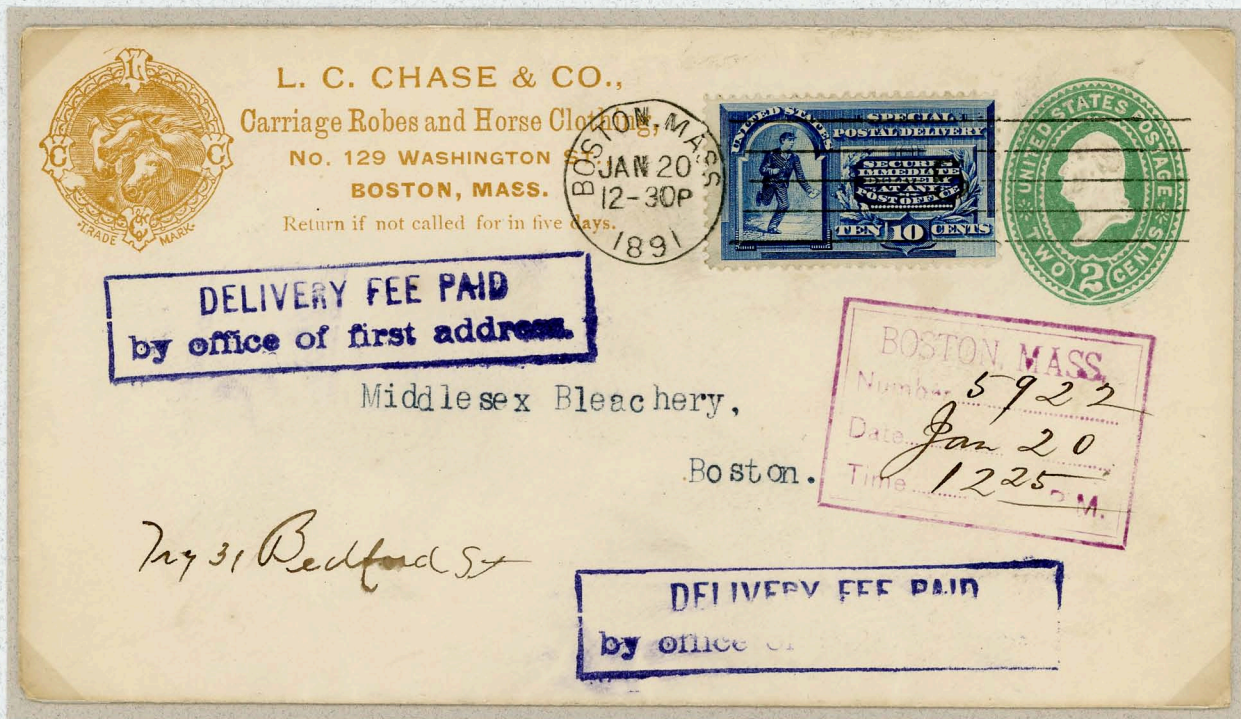 L. C. CHASE & CO.,
Carriage Robes and Horse Clothing,
No. 129 WASHINGTON
BOSTON, MASS.
Return if not called for in five days.
L
C C
& Co
TRADE MARK
BOSTON, MASS
JAN 20
12-30P
1891
UNITED STATES
SPECIAL
POSTAL DELIVERY
SECURES
IMMEDIATE
DELIVERY
AT ANY
POST OFFICE
TEN 10 CENTS
UNITED STATES POSTAGE
TWO 2 CENTS
DELIVERY FEE PAID
by office of first address.
BOSTON, MASS.
Number 5922
Date Jan 20
Time 12 25 P.M.
Middlesex Bleachery,
Boston.
Try 31 Bedford St
DELIVERY FEE PAID
by office of